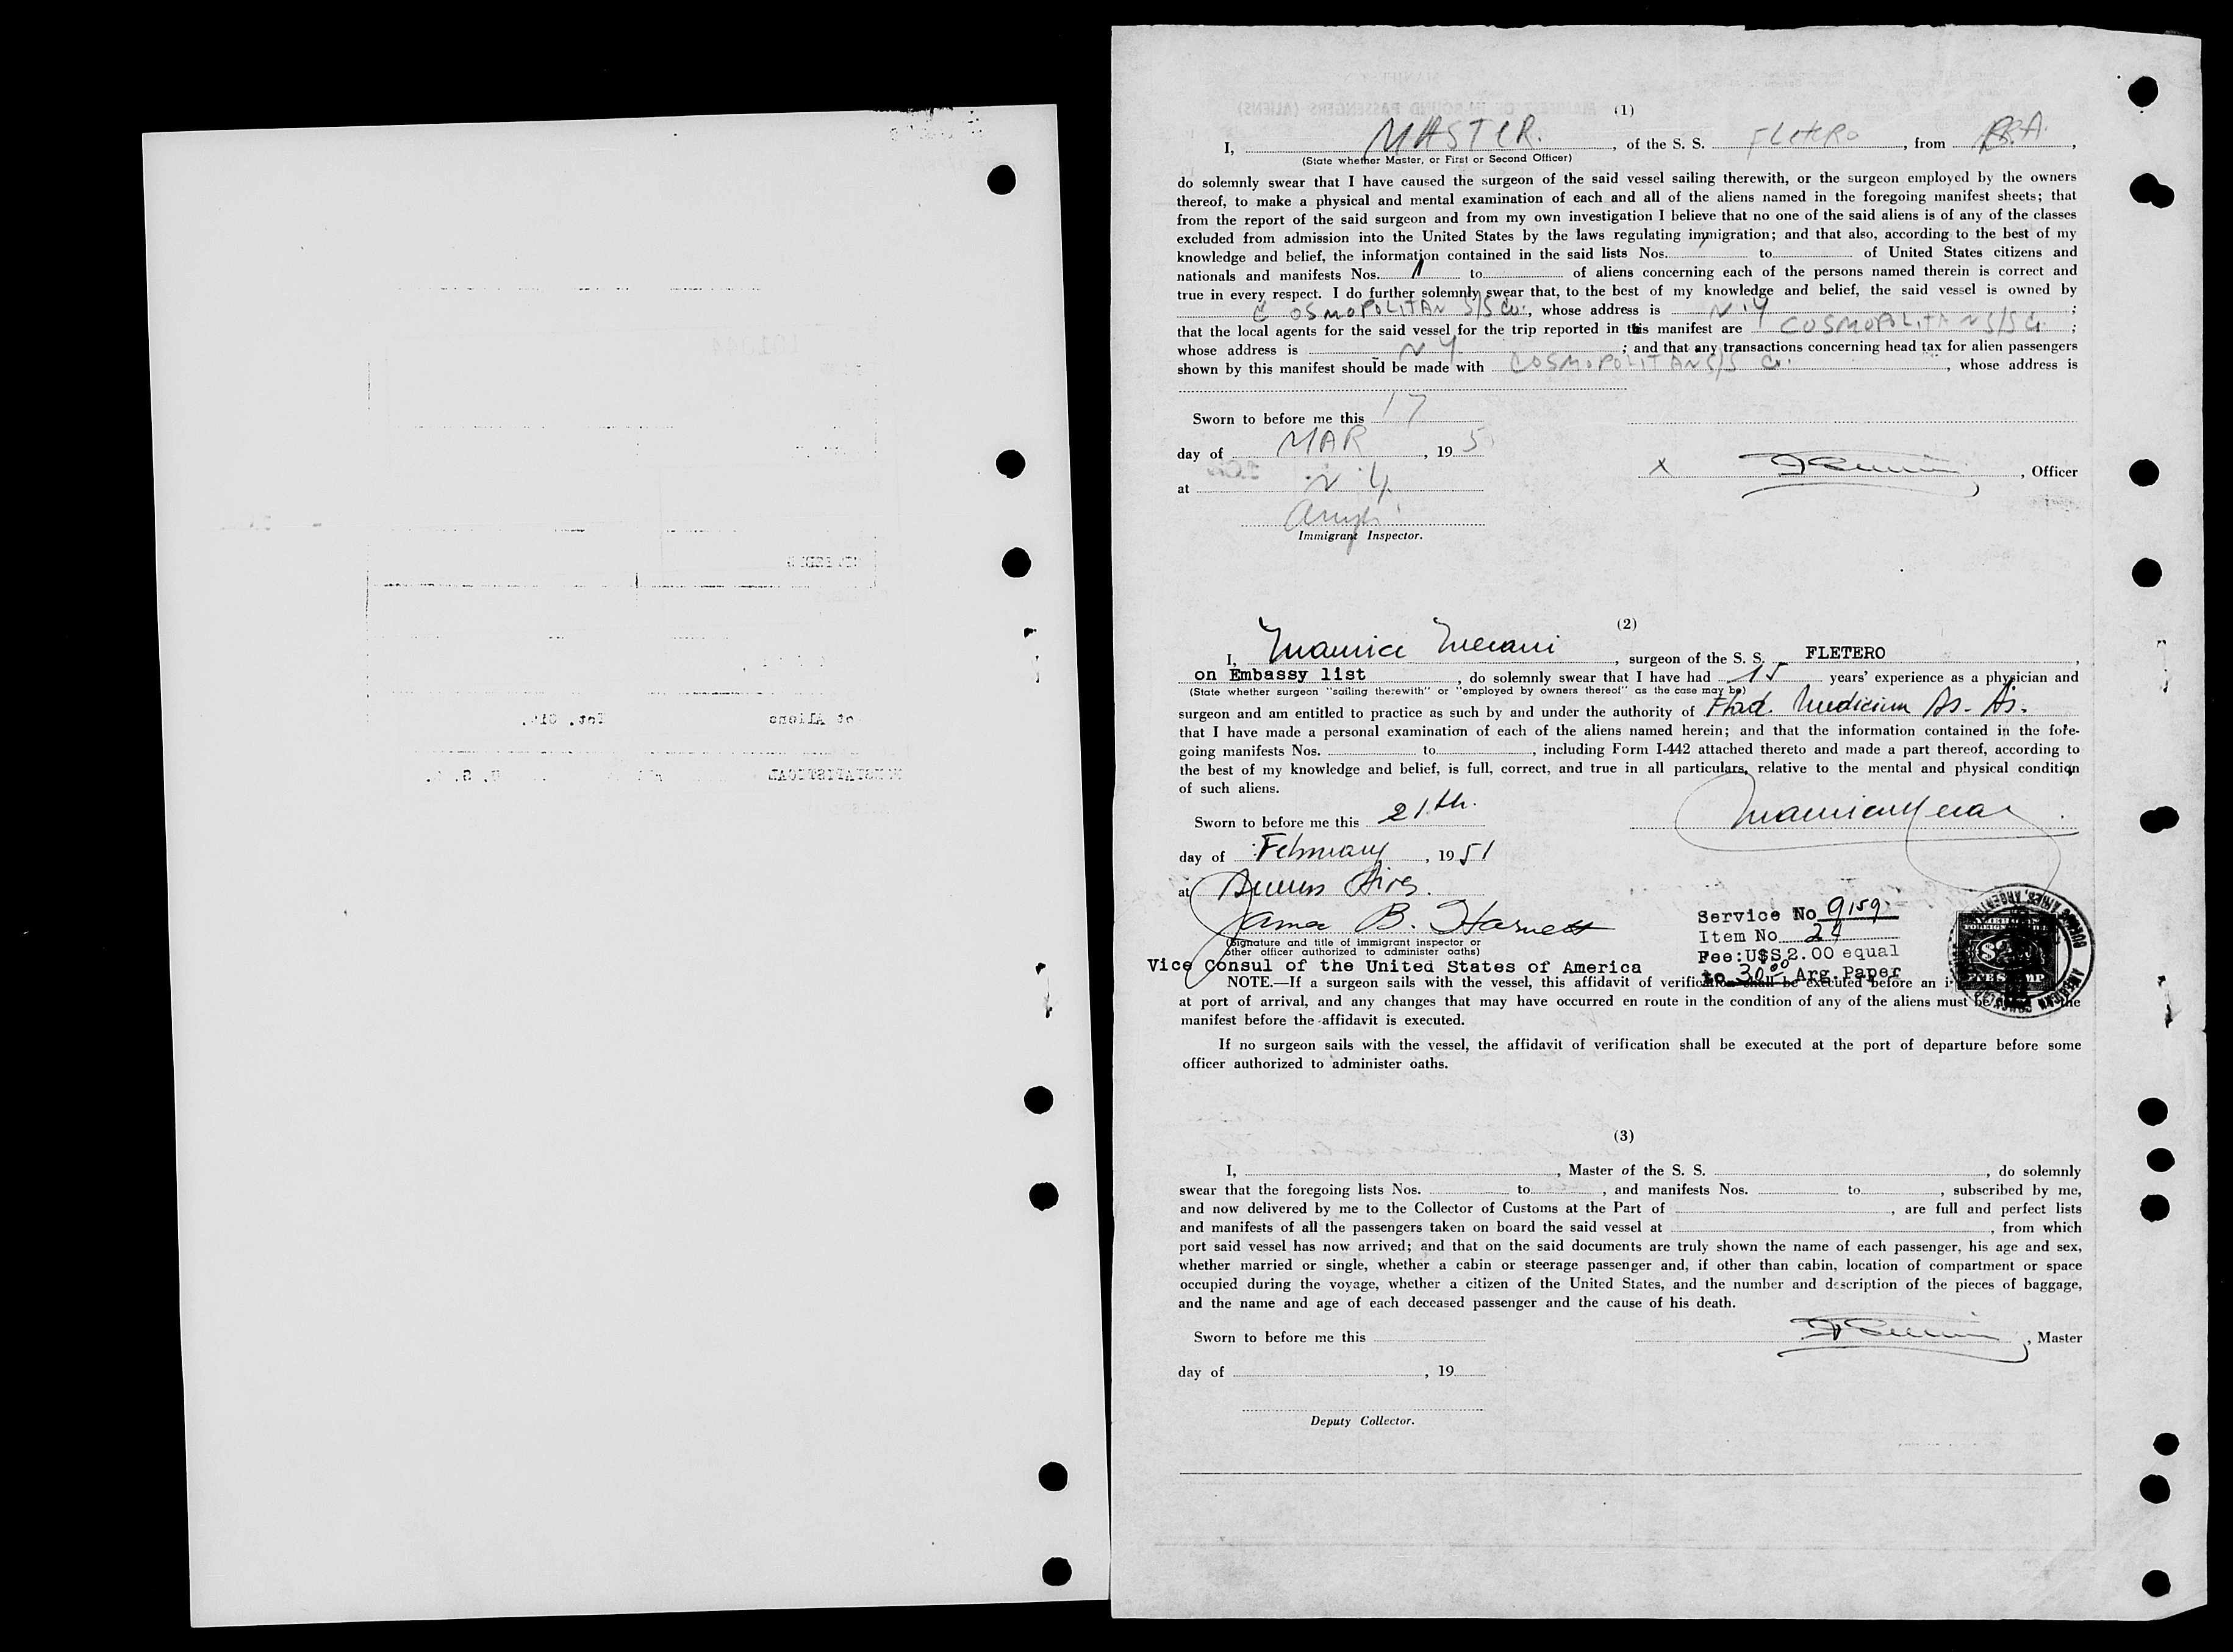 (1)
I, MASTER. , of the S. S. FLetero , from B.A. ,
(State whether Master, or First or Second Officer)
do solemnly swear that I have caused the surgeon of the said vessel sailing therewith, or the surgeon employed by the owners
thereof, to make a physical and mental examination of each and all of the aliens named in the foregoing manifest sheets; that
from the report of the said surgeon and from my own investigation I believe that no one of the said aliens is of any of the classes
excluded from admission into the United States by the laws regulating immigration; and that also, according to the best of my
knowledge and belief, the information contained in the said lists Nos. to of United States citizens and
nationals and manifests Nos. 1 to of aliens concerning each of the persons named therein is correct and
true in every respect. I do further solemnly swear that, to the best of my knowledge and belief, the said vessel is owned by
COSMOPOLITAN S/S Co. , whose address is N.Y ;
that the local agents for the said vessel for the trip reported in this manifest are COSMOPOLITAN S/S Co. ;
whose address is N Y ; and that any transactions concerning head tax for alien passengers
shown by this manifest should be made with COSMOPOLITAN S/S Co. , whose address is
Sworn to before me this 17
day of MAR , 19 5
at N.Y. , Officer
Immigrant Inspector.
(2)
I, Maurice Merani , surgeon of the S. S. FLETERO ,
on Embassy list , do solemnly swear that I have had 15 years' experience as a physician and
(State whether surgeon "sailing therewith" or "employed by owners thereof" as the case may be)
surgeon and am entitled to practice as such by and under the authority of Fac. Bs. As.
that I have made a personal examination of each of the aliens named herein; and that the information contained in the fore-
going manifests Nos. to , including Form I-442 attached thereto and made a part thereof, according to
the best of my knowledge and belief, is full, correct, and true in all particulars, relative to the mental and physical condition
of such aliens.
Sworn to before me this 21th.
day of February , 1951
at Buenos Aires.
James B. Harnett
(Signature and title of immigrant inspector or
other officer authorized to administer oaths)
Vice Consul of the United States of America
Service No 9159
Item No 24
Fee:U$S 2.00 equal
to 30.00 Arg.Paper
NOTE.—If a surgeon sails with the vessel, this affidavit of verification shall be executed before an
at port of arrival, and any changes that may have occurred en route in the condition of any of the aliens must be the
manifest before the affidavit is executed.
If no surgeon sails with the vessel, the affidavit of verification shall be executed at the port of departure before some
officer authorized to administer oaths.
(3)
I, , Master of the S. S. , do solemnly
swear that the foregoing lists Nos. to , and manifests Nos. to , subscribed by me,
and now delivered by me to the Collector of Customs at the Part of , are full and perfect lists
and manifests of all the passengers taken on board the said vessel at , from which
port said vessel has now arrived; and that on the said documents are truly shown the name of each passenger, his age and sex,
whether married or single, whether a cabin or steerage passenger and, if other than cabin, location of compartment or space
occupied during the voyage, whether a citizen of the United States, and the number and description of the pieces of baggage,
and the name and age of each deceased passenger and the cause of his death.
Sworn to before me this , Master
day of , 19
Deputy Collector.